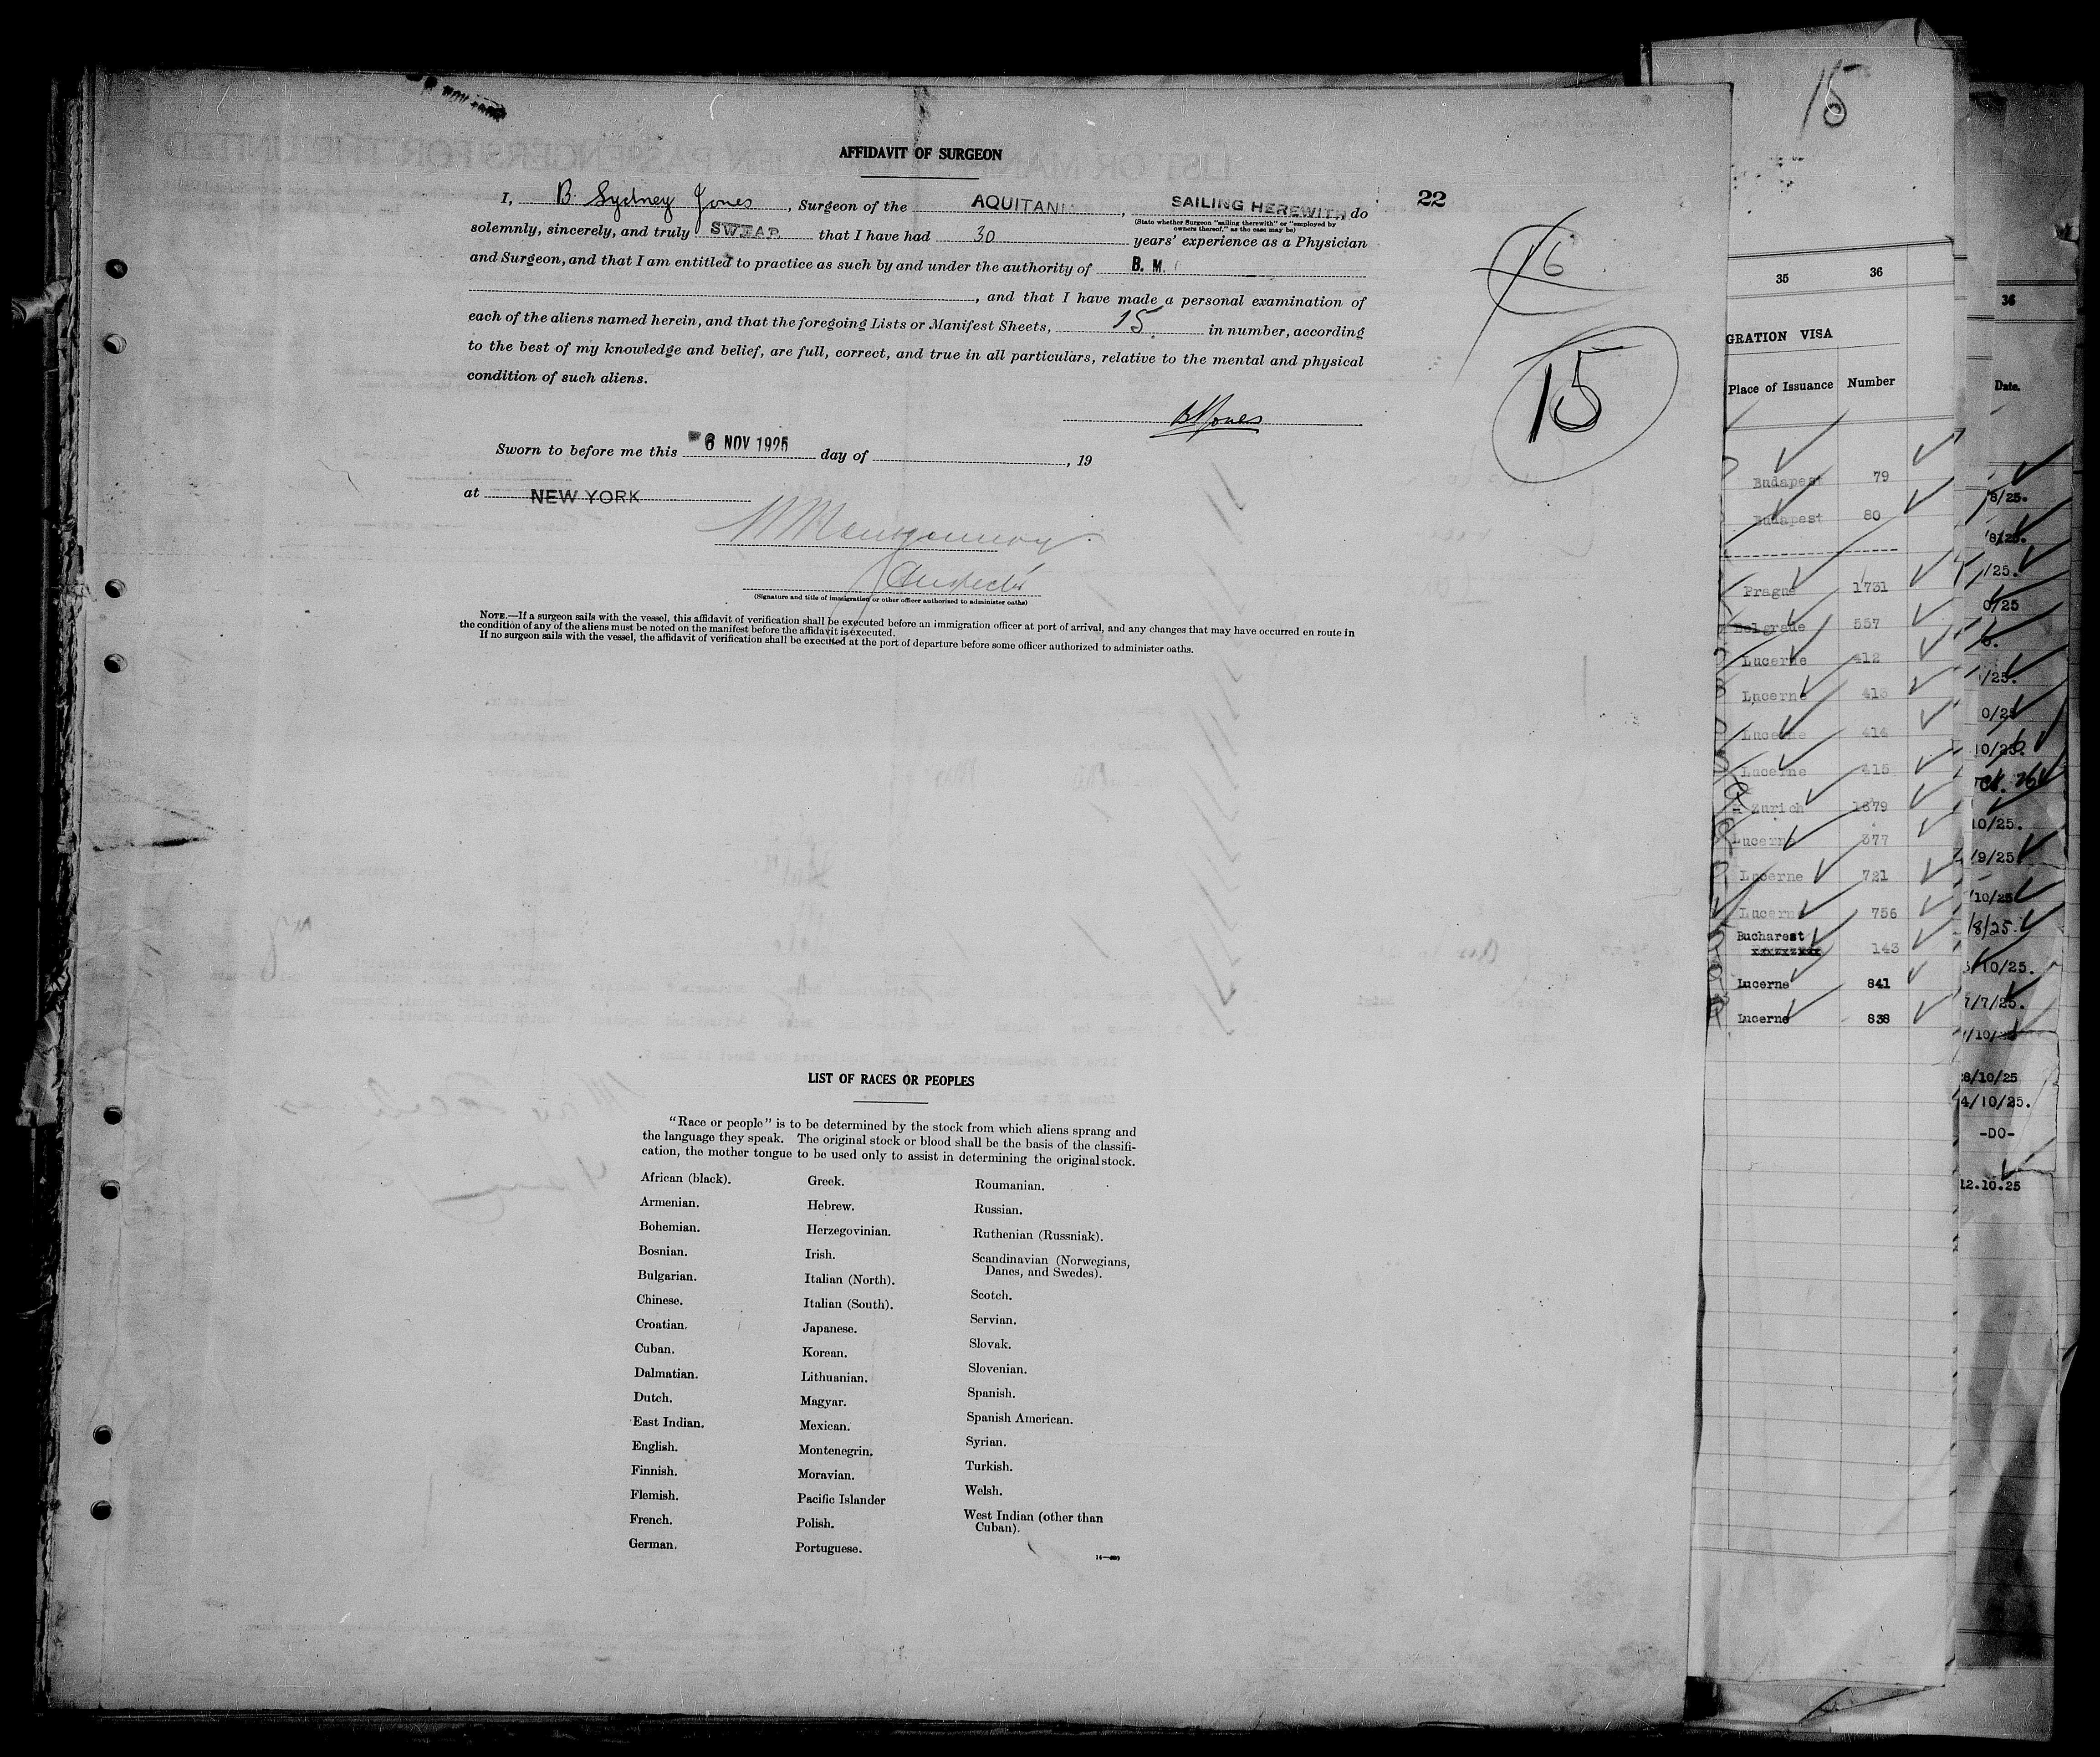 15
AFFIDAVIT OF SURGEON
I, B. Sydney Jones, Surgeon of the AQUITANI, SAILING HEREWITH, do
(State whether Surgeon "sailing therewith" or "employed by
owners thereof," as the case may be)
22
solemnly, sincerely, and truly SWEAR that I have had 30 years' experience as a Physician
and Surgeon, and that I am entitled to practice as such by and under the authority of B. M.
, and that I have made a personal examination of
each of the aliens named herein, and that the foregoing Lists or Manifest Sheets, 15 in number, according
to the best of my knowledge and belief, are full, correct, and true in all particulars, relative to the mental and physical
condition of such aliens.
16
15
B S Jones
Sworn to before me this 6 NOV 1925 day of , 19
at NEW YORK
Montgomery
Inspector
(Signature and title of immigration or other officer authorized to administer oaths)
NOTE.—If a surgeon sails with the vessel, this affidavit of verification shall be executed before an immigration officer at port of arrival, and any changes that may have occurred en route in
the condition of any of the aliens must be noted on the manifest before the affidavit is executed.
If no surgeon sails with the vessel, the affidavit of verification shall be executed at the port of departure before some officer authorized to administer oaths.
LIST OF RACES OR PEOPLES
"Race or people" is to be determined by the stock from which aliens sprang and
the language they speak. The original stock or blood shall be the basis of the classifi-
cation, the mother tongue to be used only to assist in determining the original stock.
African (black).
Armenian.
Bohemian.
Bosnian.
Bulgarian.
Chinese.
Croatian.
Cuban.
Dalmatian.
Dutch.
East Indian.
English.
Finnish.
Flemish.
French.
German.
Greek.
Hebrew.
Herzegovinian.
Irish.
Italian (North).
Italian (South).
Japanese.
Korean.
Lithuanian.
Magyar.
Mexican.
Montenegrin.
Moravian.
Pacific Islander
Polish.
Portuguese.
Roumanian.
Russian.
Ruthenian (Russniak).
Scandinavian (Norwegians,
Danes, and Swedes).
Scotch.
Servian.
Slovak.
Slovenian.
Spanish.
Spanish American.
Syrian.
Turkish.
Welsh.
West Indian (other than
Cuban).
35 36
GRATION VISA
Place of Issuance Number
Budapest 79
Budapest 80
Prague 1731
Belgrade 557
Lucerne 412
Lucerne 413
Lucerne 414
Lucerne 415
Zurich 1879
Lucerne 377
Lucerne 721
Lucerne 756
Bucharest
143
Lucerne 841
Lucerne 838
36
Date.
8/25.
8/25.
/25.
0/25
/25.
0/25
10/25.
10/25.
/9/25
/10/25
/8/25.
/10/25.
7/7/25.
/10/25
28/10/25
4/10/25.
-DO-
12.10.25